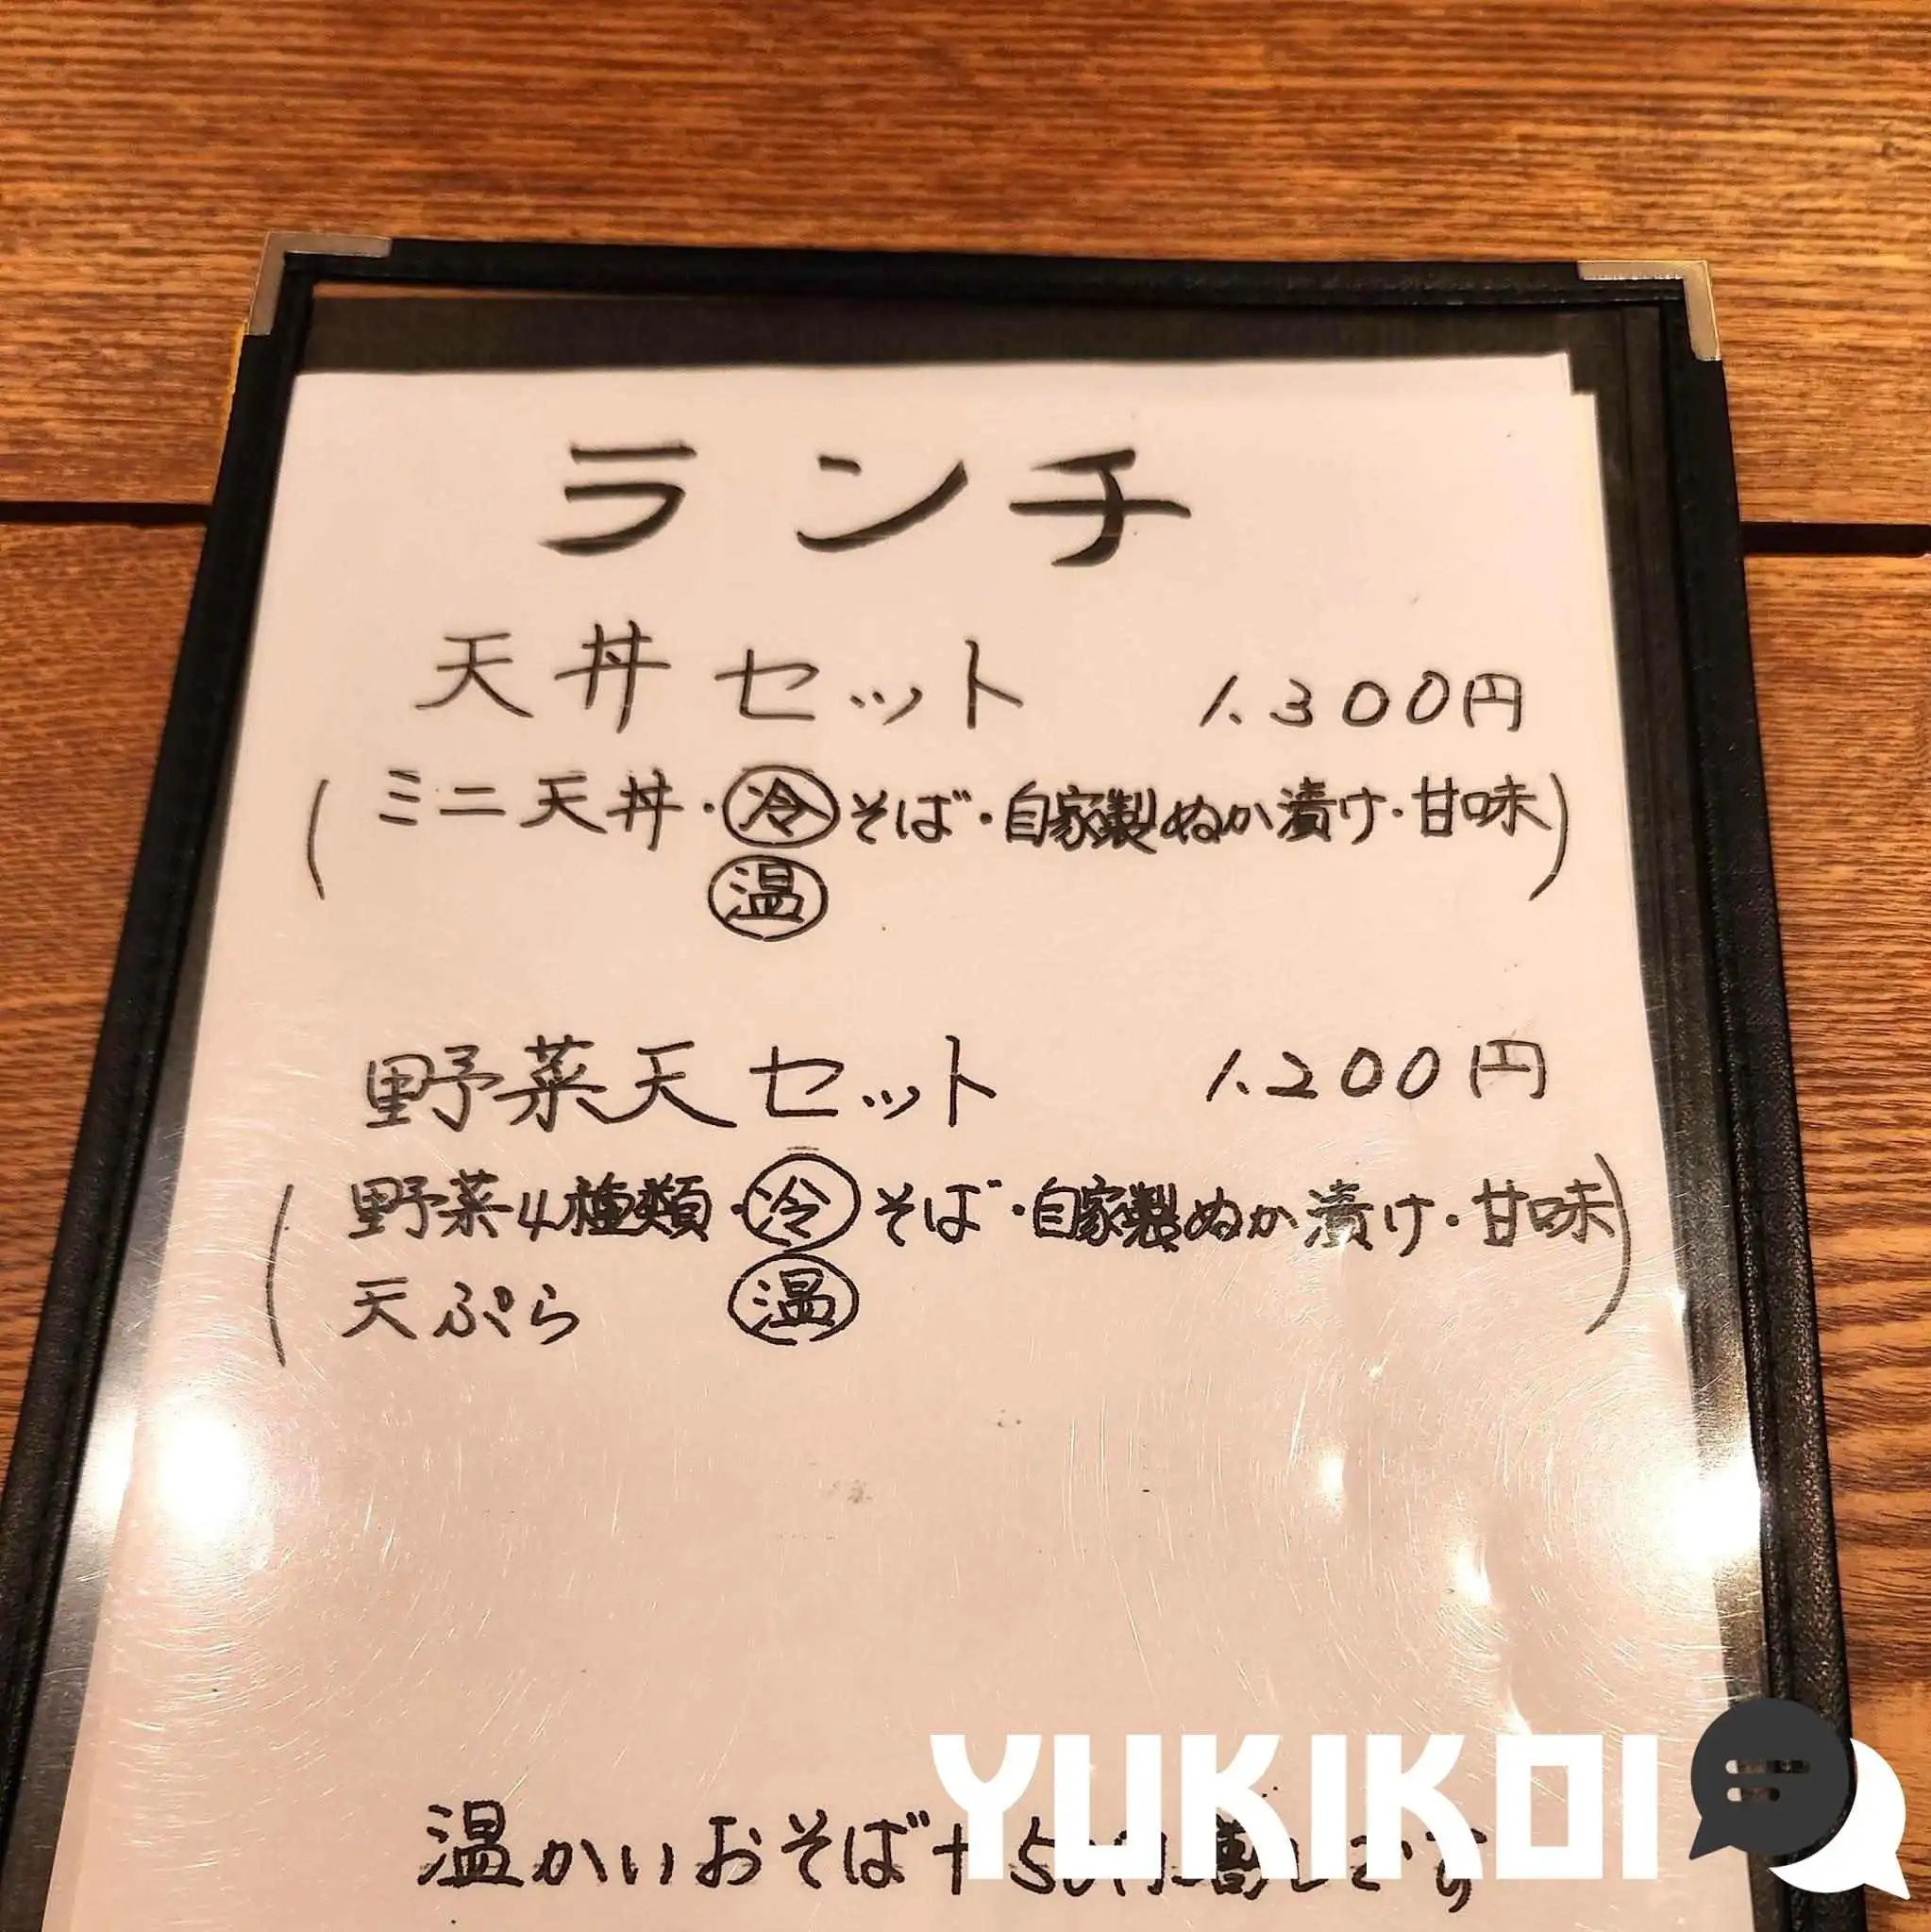 ランチ
天丼セット 1.300円
(ミニ天丼・冷そば・自家製ぬか漬け・甘味)
温
野菜天セット 1.200円
(野菜4種類・冷そば・自家製ぬか漬け・甘味)
天ぷら 温
温かいおそば+50円増しです
YUKIKOI